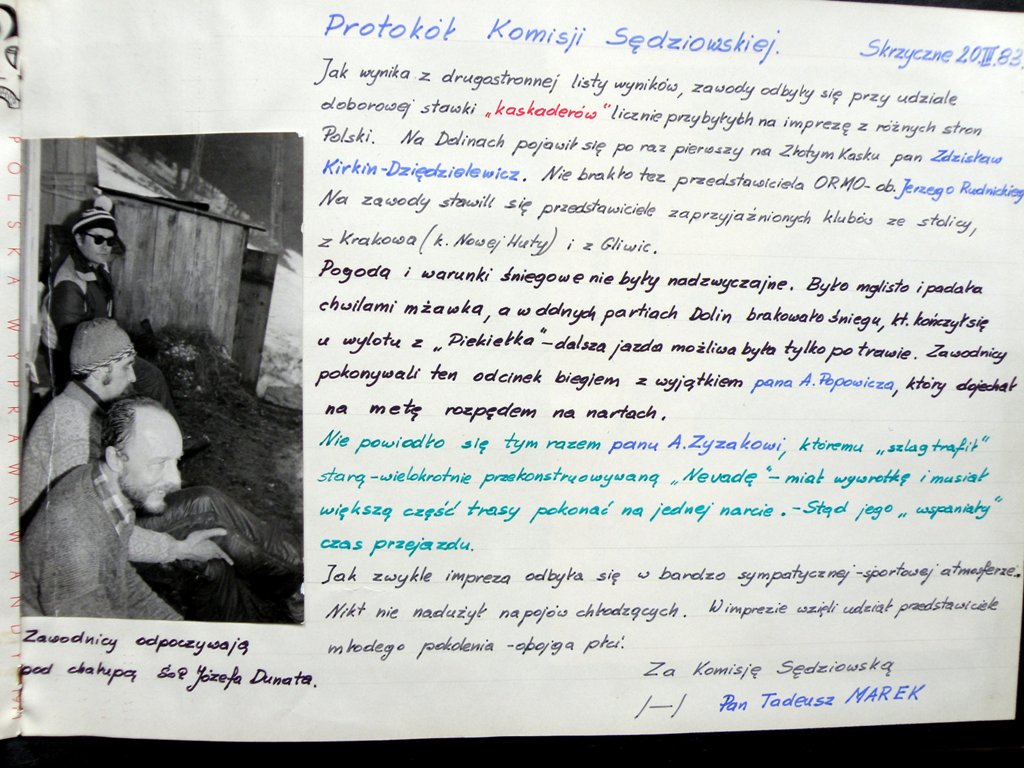 Protokół Komisji Sędziowskiej.
Skrzyczne 20.III.83.
Jak wynika z drugostronnej listy wyników, zawody odbyły się przy udziale
doborowej stawki „kaskaderów" licznie przybyłych na imprezę z różnych stron
Polski. Na Dolinach pojawił się po raz pierwszy na Złotym Kasku pan Zdzisław
Kirkin-Dziędzielewicz. Nie brakło też przedstawiciela ORMO-ob. Jerzego Rudnickiego
Na zawody stawili się przedstawiciele zaprzyjaźnionych klubów ze stolicy,
z Krakowa (k. Nowej Huty) i z Gliwic.
Pogoda i warunki śniegowe nie były nadzwyczajne. Było mglisto i padała
chwilami mżawka, a w dolnych partiach Dolin brakowało śniegu, kt. kończył się
u wylotu z „Piekiełka" – dalsza jazda możliwa była tylko po trawie. Zawodnicy
pokonywali ten odcinek biegiem z wyjątkiem pana A. Popowicza, który dojechał
na metę rozpędem na nartach.
Nie powiodło się tym razem panu A. Zyzakowi, któremu „szlag trafił"
starą – wielokrotnie przekonstruowywaną „Nevadę" – miał wywrotkę i musiał
większą część trasy pokonać na jednej narcie. – Stąd jego „wspaniały"
czas przejazdu.
Jak zwykle impreza odbyła się w bardzo sympatycznej-sportowej atmosferze.
Nikt nie nadużył napojów chłodzących. W imprezie wzięli udział przedstawiciele
młodego pokolenia – obojga płci!
Za Komisję Sędziowską
/—/ Pan Tadeusz MAREK
Zawodnicy odpoczywają
pod chałupą Józefa Dunata.
POLSKA WYPRAWA W AND